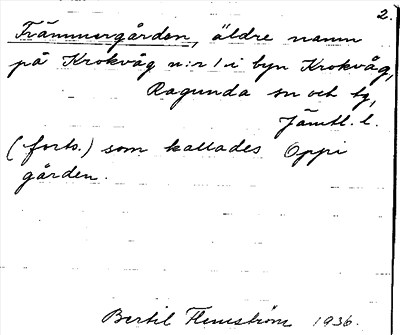 2.
Främmergården, äldre namn
på Krokvåg n:r 1 i byn Krokvåg,
Ragunda sn och tg,
Jämtl. l.
(forts.) som kallades Oppi
gården.
Bertil Flemström 1936.